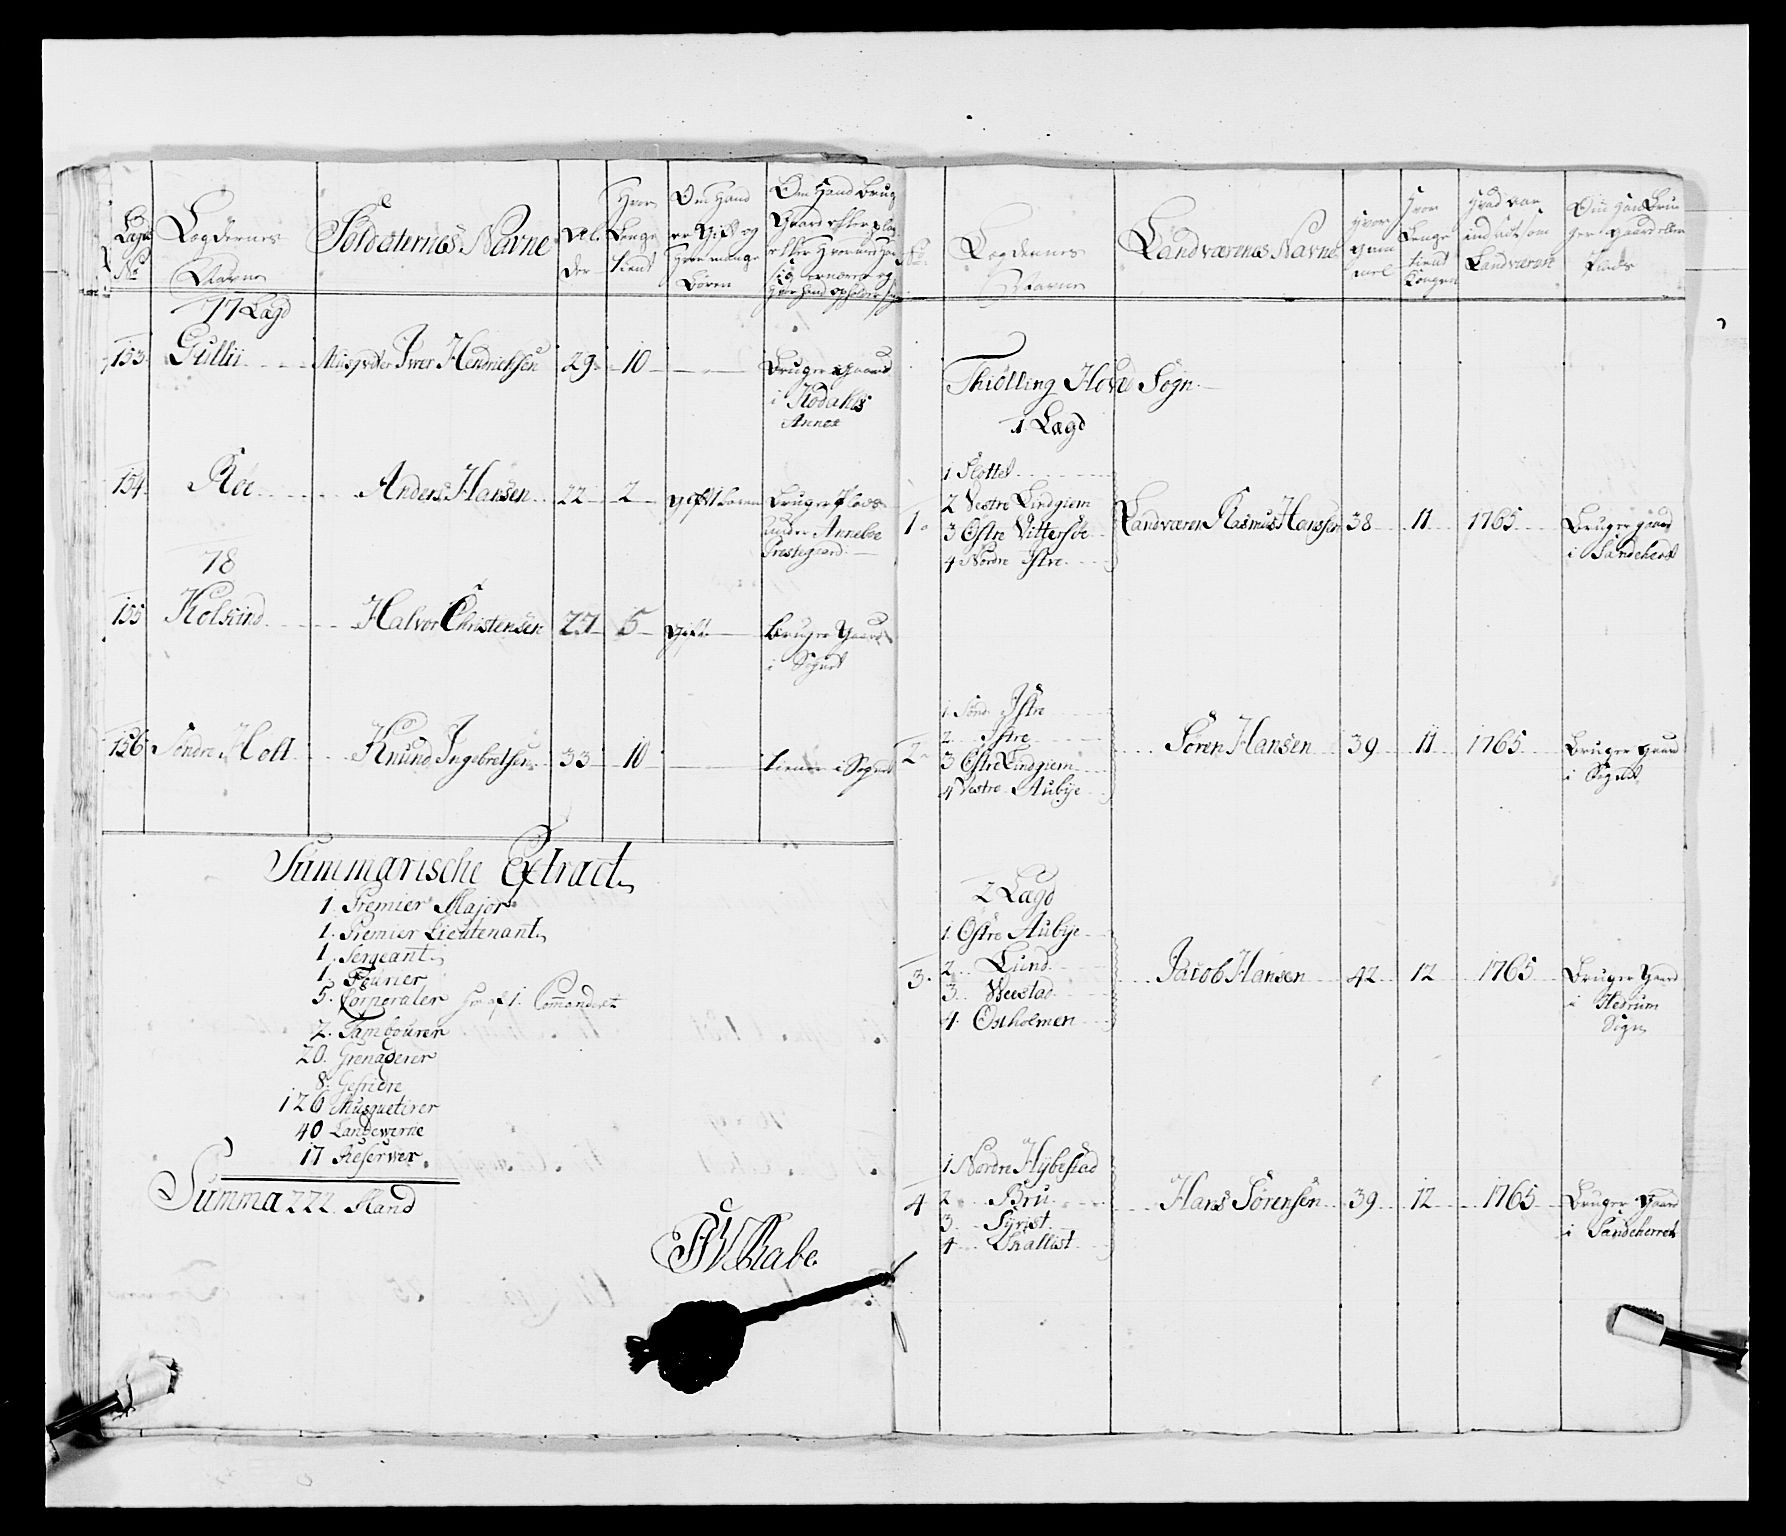 Lægd
No
Lægdernes
Navne
Soldaternes Navne
Al-
der
Hvor
Længe
tient
Om Hand
er Gift og
Hvor mange
Börn
Om Hand Brug
Gaard eller Plas
77 Lægd
153 Gullii Musqveter Iver Hendrichsen 29 10
Bruger Gaard
i Kodahls
Annex
154 Röe Anders Hansen 22 2 gift 1 barn Bruger Plads
under Anneboe
Præstegaard
78
155 Kolsrud Halvor Christensen 27 5 gift Bruger Gaard
i Sognet
156 Söndre Holt Knud Ingebretsen 33 10 tiener i Sognet
Summarische Extract
1. Premier Major
1. Premier Lieutenant
1. Sergeant
1. Fourier
5. Corporaler hvoraf 1. Commanderet
2. Tambourer
20. Grenaderer
8. Gefriedre
126 Musquetirer
40 Landewerne
17 Reserver
Summa 222. Mand
FWRabe
No
Lægdernes
Navne
Landværenes Navne
Hvor
gam-
mel
Hvor
Længe
tient
Kongen
Hvad Aar
indsadt som
Landværen
Om Han Bru
ger Gaard eller
Plads
Thiölling Hoved Sogn
1 Lægd
1 Slottet
2 Vestre Lindgiem
3 Östre Vittersöe
4 Nordre Istre
1. Landværen Rasmus Hansen 38 11 1765 Bruger gaard
i Sandeherret
1 Sönd. Istre
2 Istre
3 Östre Lindgiem
4 Vestre Aubye
2. Sören Hansen 39 11 1765 Bruger gaard
i Sognet
2 Lægd
1. Östre Aubye
2. Lund
3. Weestad
4. Östholmen
3. Jacob Hansen 42 12 1765 Bruger Gaard
i Hedrum
Sogn
1 Nordre Hybestad
2 Bru
3 Syrist
4 Skallist
4 Hans Sörensen 39 12 1765 Bruger Gaard
i Sandeherret